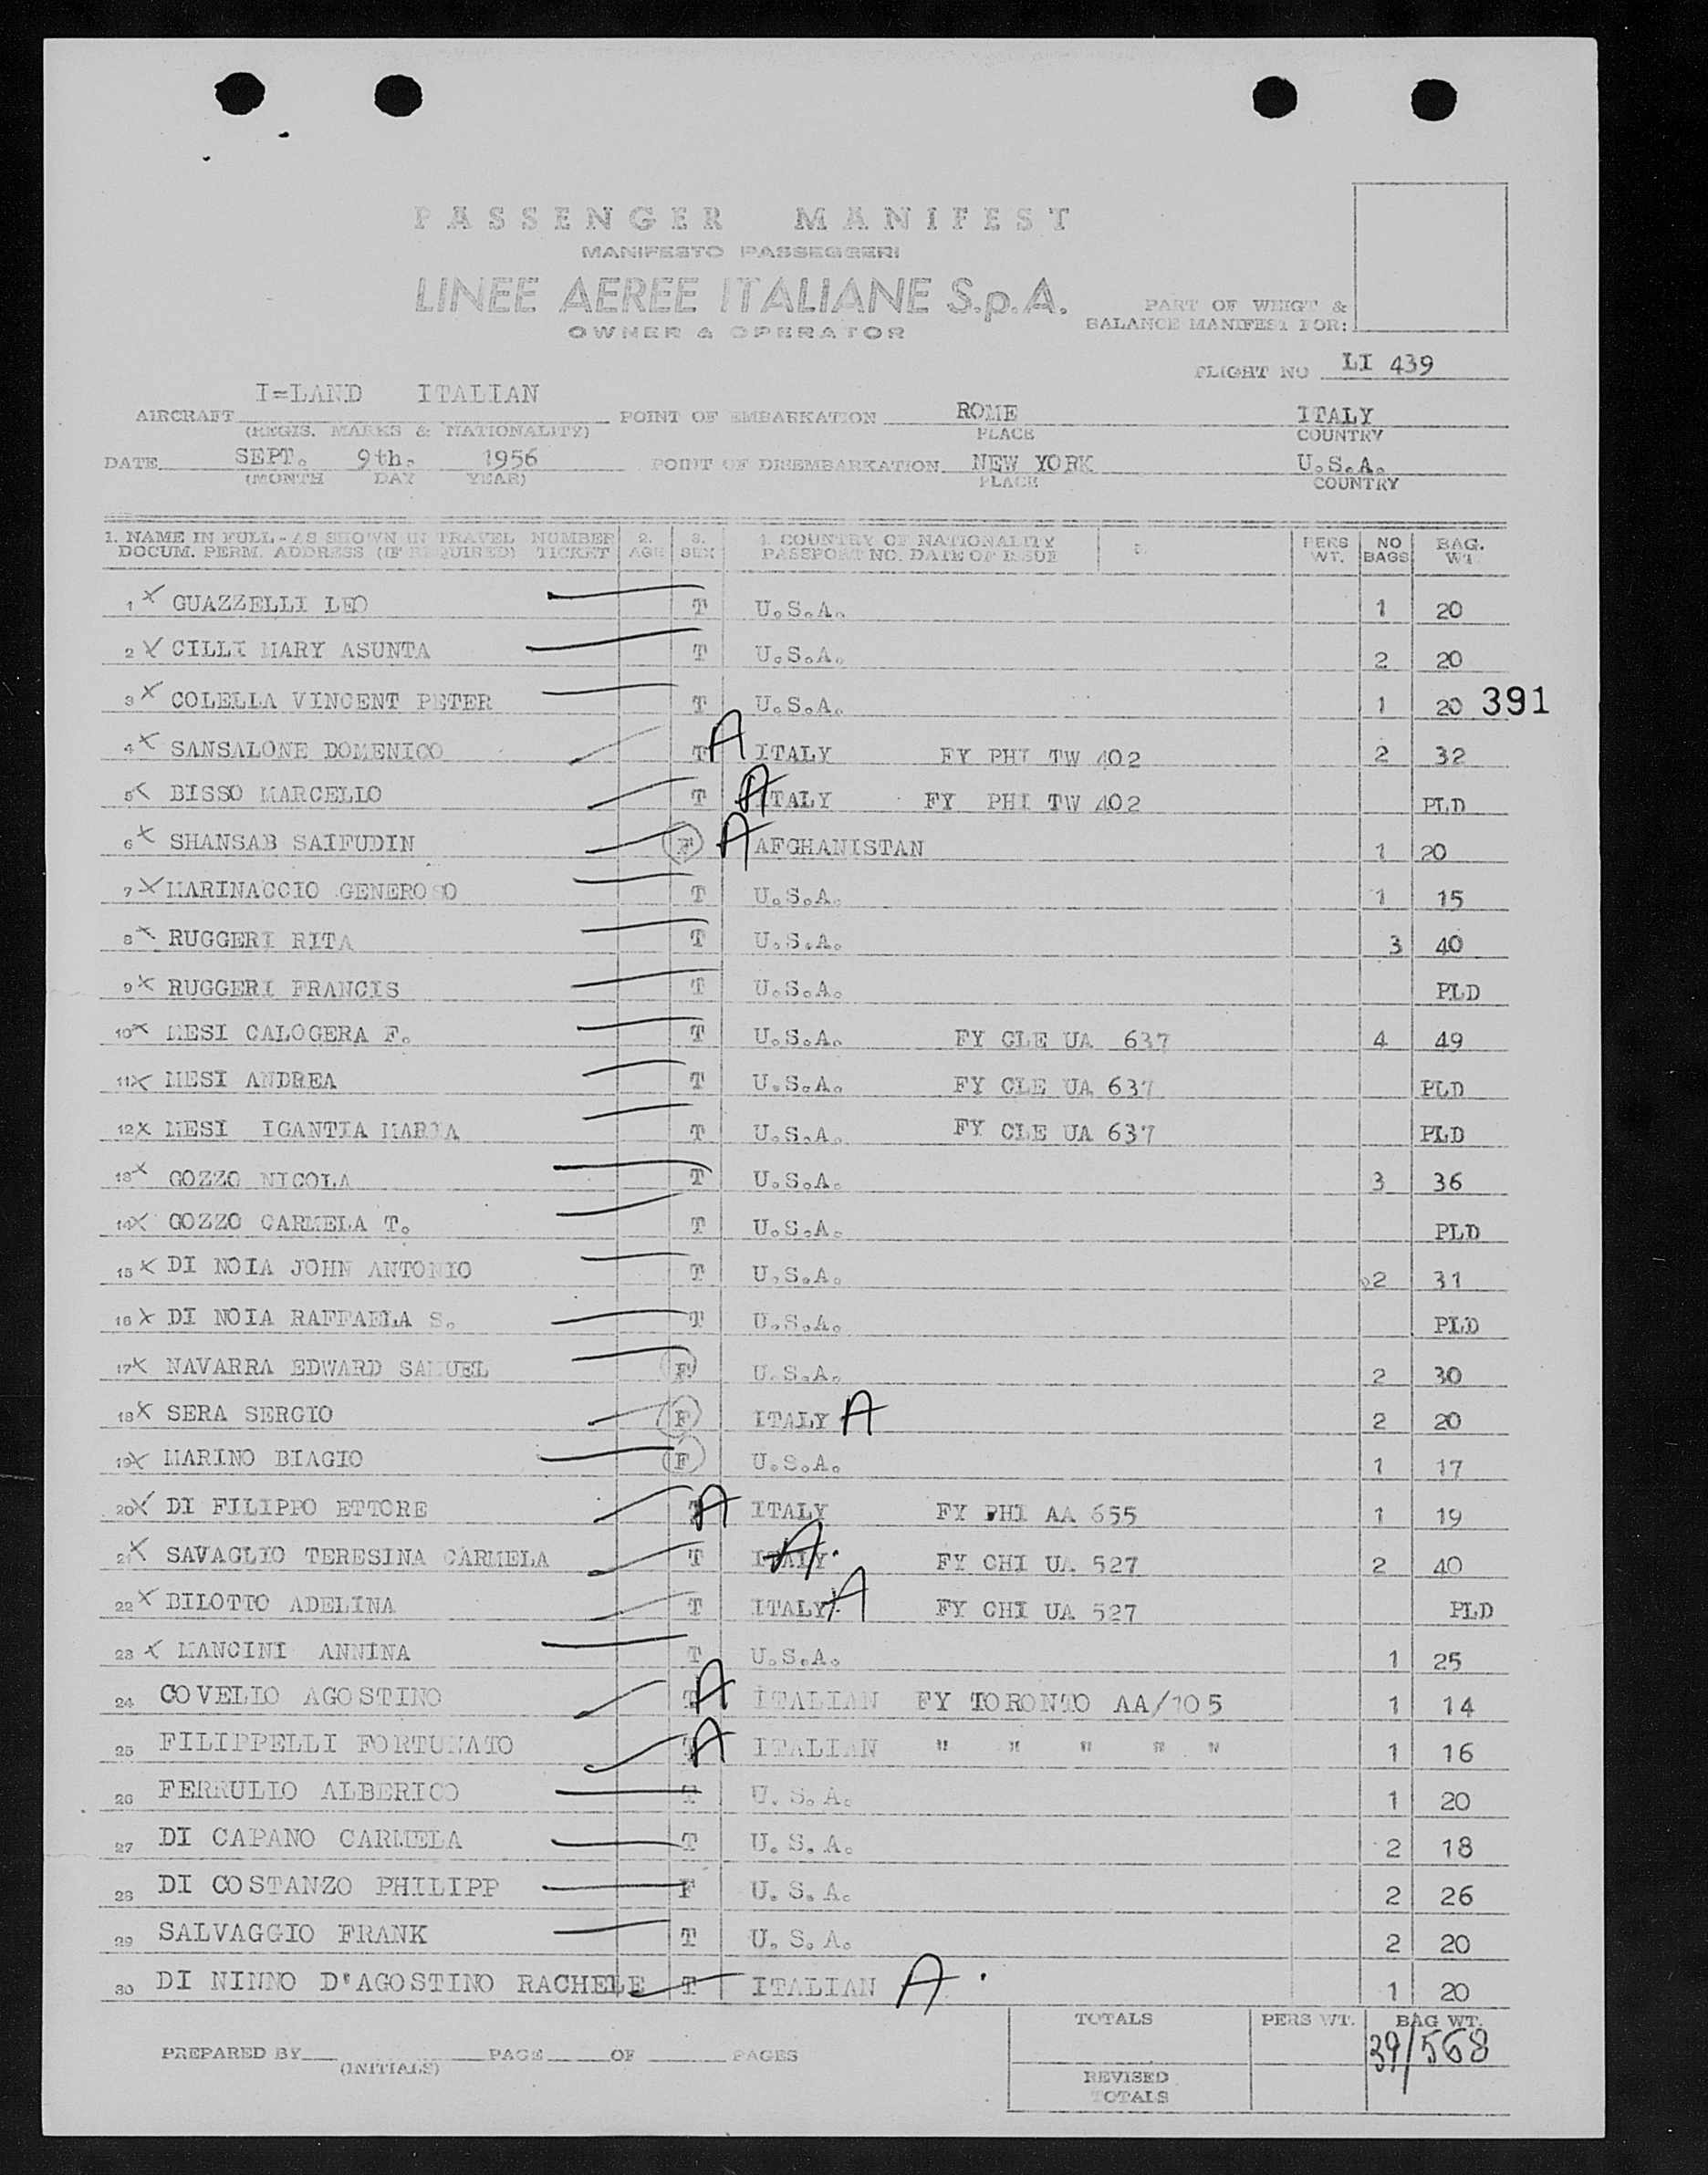 PASSENGER MANIFEST
MANIFESTO PASSEGGERI
LINEE AEREE ITALIANE S.p.A.
OWNER & OPERATOR
PART OF WEIGT &
BALANCE MANIFEST FOR:
FLIGHT NO LI 439
AIRCRAFT I=LAND ITALIAN POINT OF EMBARKATION ROME ITALY
(REGIS. MARKS & NATIONALITY) PLACE COUNTRY
DATE SEPT. 9th. 1956 POINT OF DISEMBARKATION NEW YORK U.S.A.
(MONTH DAY YEAR) PLACE COUNTRY
1. NAME IN FULL - AS SHOWN IN TRAVEL NUMBER 2. 3. 4. COUNTRY OF NATIONALITY PERS NO BAG.
DOCUM. PERM. ADDRESS (IF REQUIRED) TICKET AGE SEX PASSPORT NO. DATE OF ISSUE WT. BAGS WT
1 X GUAZZELLI LEO T U.S.A. 1 20
2 X CILLI MARY ASUNTA T U.S.A. 2 20
3 X COLELLA VINCENT PETER T U.S.A. 1 20 391
4 X SANSALONE DOMENICO T A ITALY FY PHI TW 402 2 32
5 X BISSO MARCELLO T A ITALY FY PHI TW 402 PLD
6 X SHANSAB SAIFUDIN F A AFGHANISTAN 1 20
7 X MARINACCIO GENEROSO T U.S.A. 1 15
8 X RUGGERI RITA T U.S.A. 3 40
9 X RUGGERI FRANCIS T U.S.A. PLD
10 X MESI CALOGERA F. T U.S.A. FY CLE UA 637 4 49
11 X MESI ANDREA T U.S.A. FY CLE UA 637 PLD
12 X MESI IGANTIA MARIA T U.S.A. FY CLE UA 637 PLD
13 X GOZZO NICOLA T U.S.A. 3 36
14 X GOZZO CARMELA T. T U.S.A. PLD
15 X DI NOIA JOHN ANTONIO T U.S.A. 2 31
16 X DI NOIA RAFFAELA S. T U.S.A. PLD
17 X NAVARRA EDWARD SAMUEL F U.S.A. 2 30
18 X SERA SERGIO F ITALY A 2 20
19 X MARINO BIAGIO F U.S.A. 1 17
20 X DI FILIPPO ETTORE T A ITALY FY PHI AA 655 1 19
21 X SAVAGLIO TERESINA CARMELA T ITALY A FY CHI UA 527 2 40
22 X BILOTTO ADELINA T ITALY A FY CHI UA 527 PLD
23 X MANCINI ANNINA T U.S.A. 1 25
24 COVELIO AGOSTINO T A ITALIAN FY TORONTO AA/105 1 14
25 FILIPPELLI FORTUNATO T A ITALIAN " " " " " 1 16
26 FERRULIO ALBERICO T U.S.A. 1 20
27 DI CAPANO CARMELA T U.S.A. 2 18
28 DI COSTANZO PHILIPP F U.S.A. 2 26
29 SALVAGGIO FRANK T U.S.A. 2 20
30 DI NINNO D'AGOSTINO RACHELE T ITALIAN A 1 20
TOTALS PERS WT. BAG WT.
39/568
PREPARED BY PAGE OF PAGES
(INITIALS)
REVISED
TOTALS